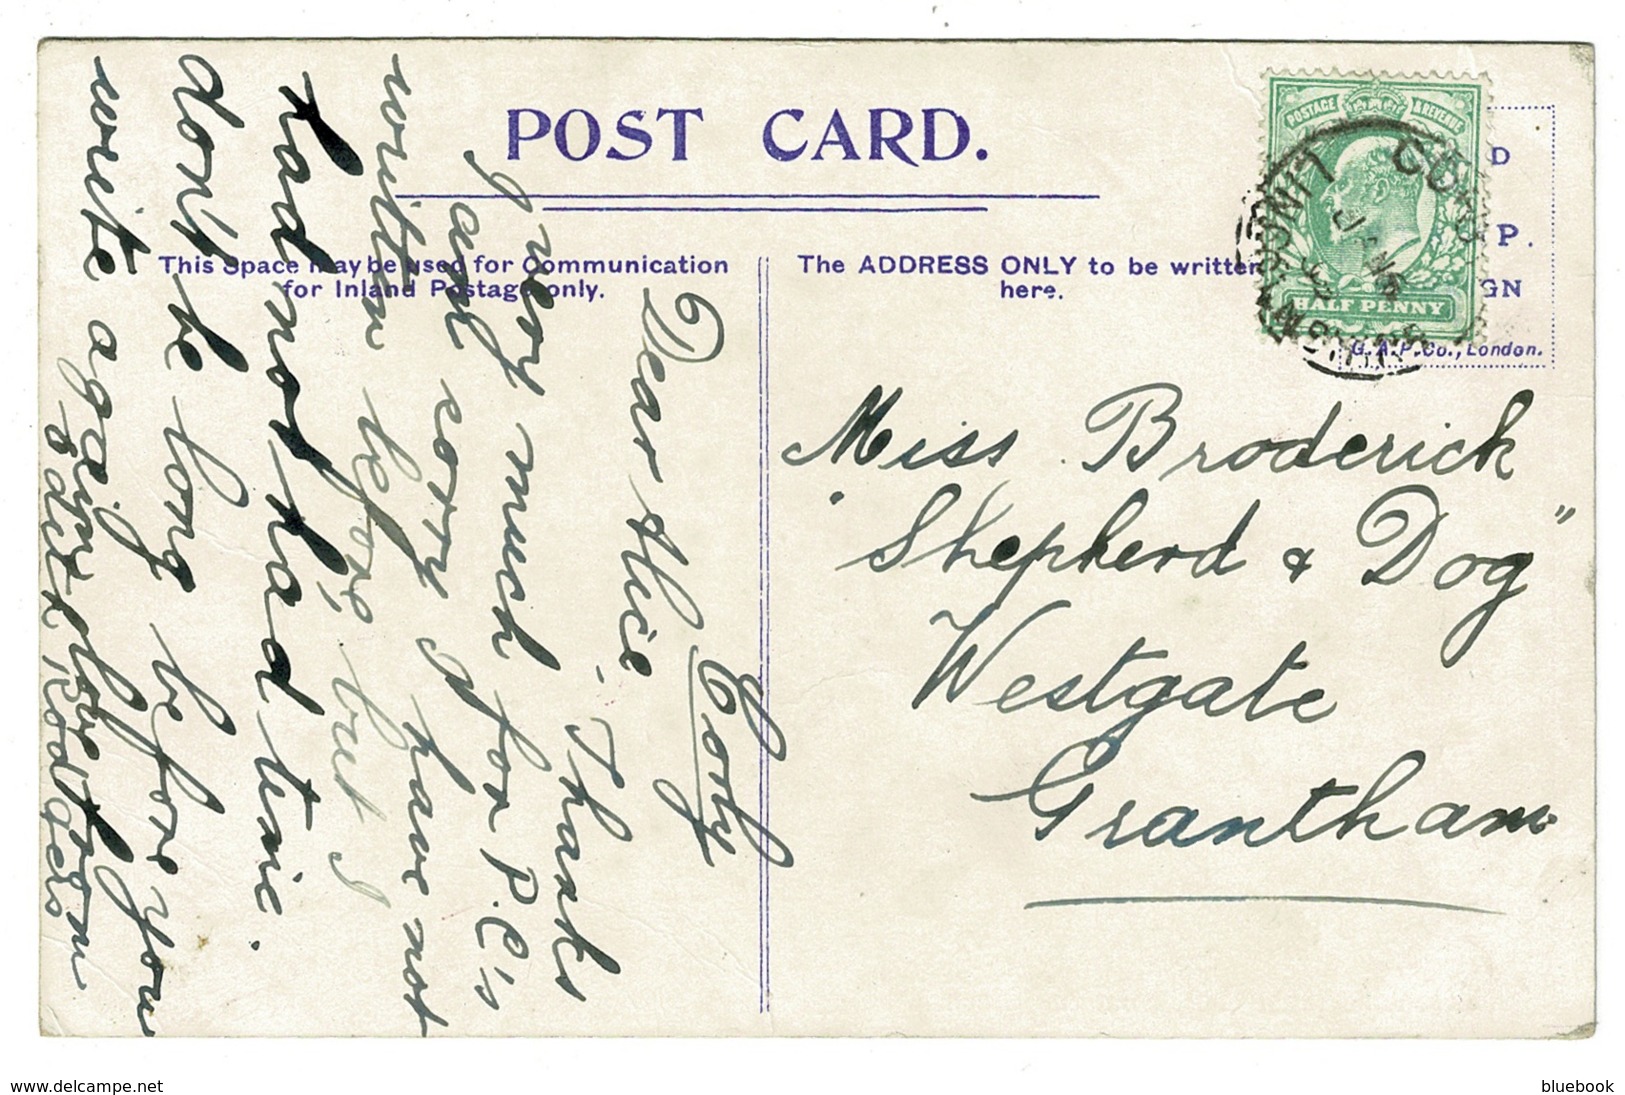 POST CARD.
This Space may be used for Communication
for Inland Postage only.
The ADDRESS ONLY to be written
here.
POSTAGE & REVENUE
HALF PENNY
COBY
LINCOLNSHIRE
D
P.
GN
G.A.P.Co., London.
Miss Broderick
"Shepherd & Dog"
Westgate
Grantham
Coby
Dear Alice. Thanks
very much for P.C's
I am sorry I have not
written before, but I
had not had time.
don't be long before you
write again, love from
Edith Rodgers
www.delcampe.net
bluebook